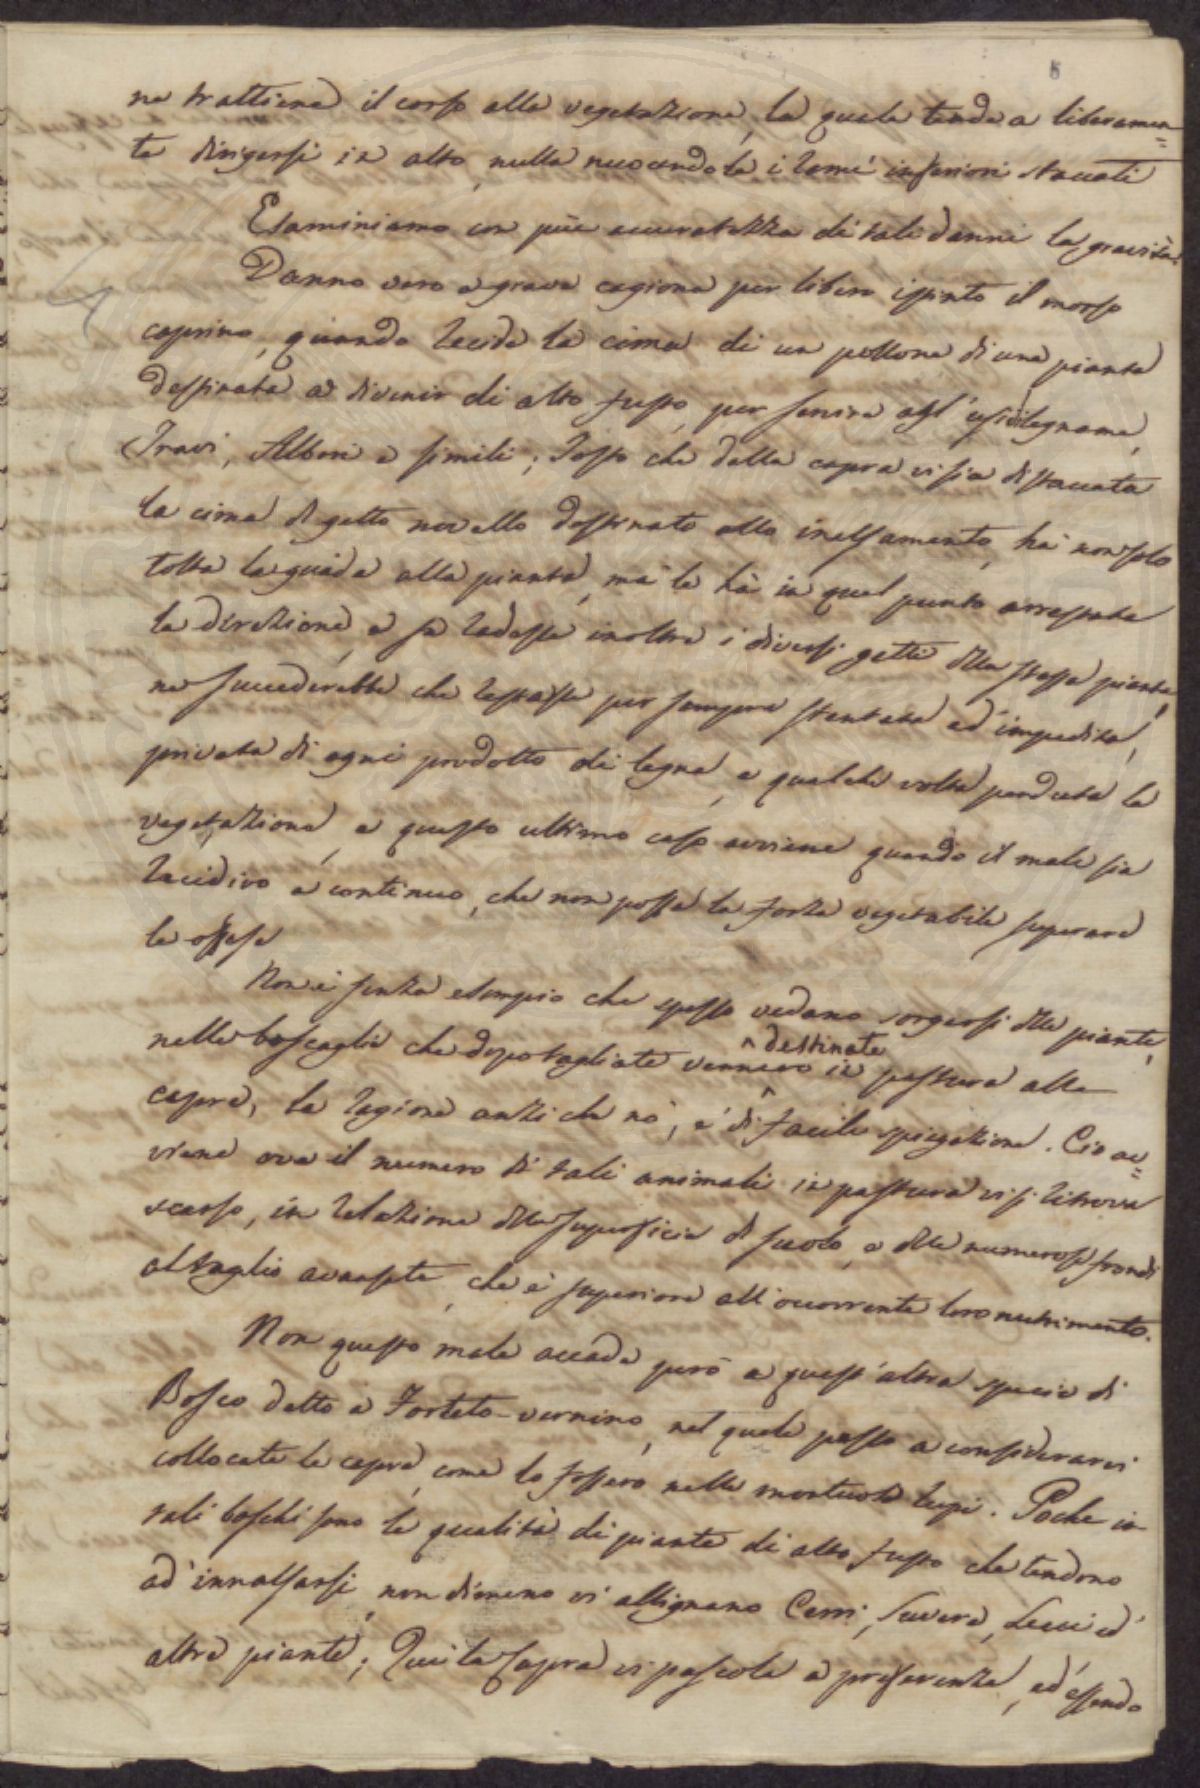 5
ne trattiene il corso alla vegetazione, la quale tende a liberamen=
te dirigersi in alto, nulla nuocendole i rami inferiori staccati
Esaminiamo con più accuratezza di tali danni la gravità.
Danno vero e grave cagiona per libero istinto il morso
caprino, quando recide la cima di un pollone di una pianta
destinata a divenir di alto fusto, per servire agl'usi di legname,
Travi, Alberi e simili; Tosto che dalla capra vi sia distaccata
la cima di getto novello destinato allo inalsamento, ha non solo
tolta la guida alla pianta, ma le hà in quel punto arrestata
la direzione, e se radesse inoltre i diversi getti della stessa pianta,
ne succederebbe che restasse per sempre stentata ed impedita,
privata di ogni prodotto di legna, e qualche volta perduta la
vegetazione, e questo ultimo caso avviene quando il male sia
recidivo e continuo, che non possa la forza vegetabile superare
le offese
Non è senza esempio che spesso vedano sorgersi delle piante,
nelle boscaglie che dopo tagliate vennero destinate in pastura alle
capre, la ragione anzi che nò, è di facile spiegazione. Cio av=
viene ove il numero di tali animali in pastura vi si ritrova
scarso, in relazione della superficie di suolo, e delle numerose frondi
al taglio avanzate, che è superiore all'occorrente loro nutrimento.
Non questo male accade però a quest'altra specie di
Bosco detto a Forteto-vernino, nel quale passo a considerarvi
collocate le capre, come lo fossero nelle montuose rupi. Poche in
tali boschi sono le qualità di piante di alto fusto che tendono
ad innalsarsi, non dimeno vi allignano Cerri, Suvere, Lecci ed
altre piante; Qui la Capra vi pascola a preferenza, ed essendo